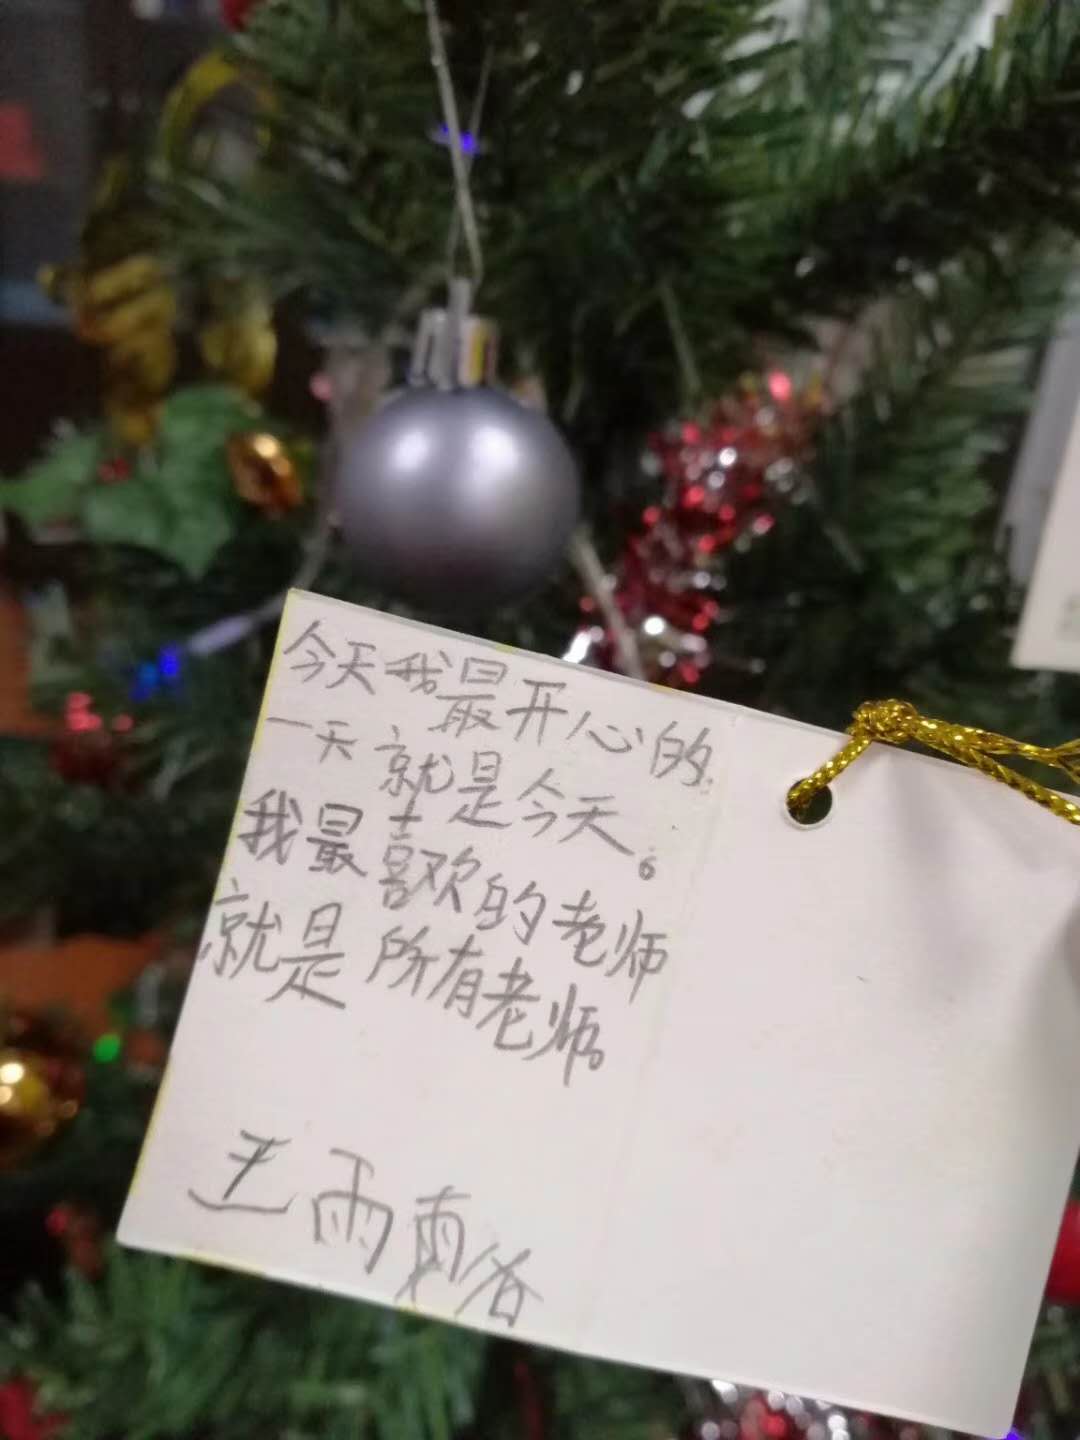 今天我最开心的
一天就是今天。
我最喜欢的老师
就是所有老师
王雨